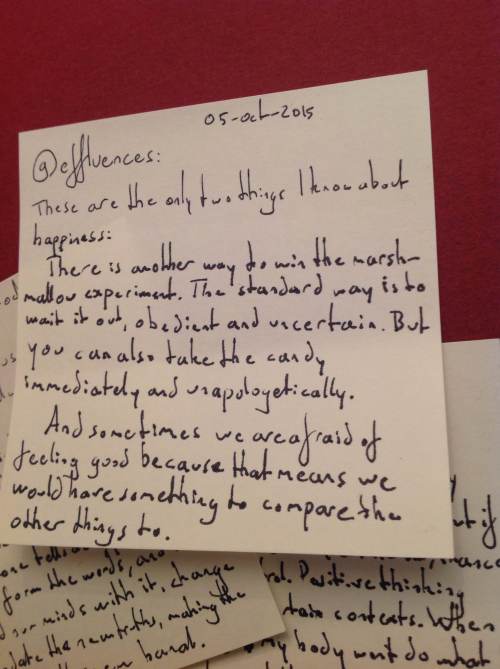 05-oct-2015
@effluences:
These are the only two things I know about
happiness:
There is another way to win the marsh-
mallow experiment. The standard way is to
wait it out, obedient and uncertain. But
you can also take the candy
immediately and unapologetically.
And sometimes we are afraid of
feeling good because that means we
would have something to compare the
other things to.
form the words, and
our minds with it, change
the new truths, making the
ut if
Positive thinking
contexts. When
my body won't do what